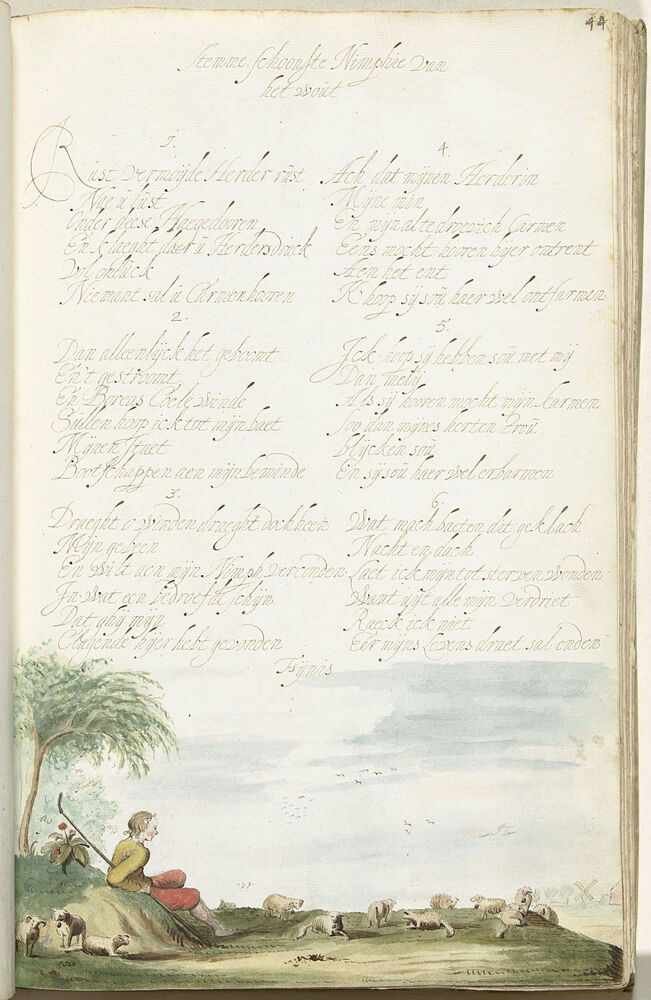 44
Stemme. Schoonste Nimphie van
het wout
1.
Rust vermoijde Herder rust
Nae u lust
Onder deese Haegedooren
En klaeght daer ú Herdersdruck
Vol onluck
Niemant sal ú Carmen hooren
2.
Dan alleenlijck het geboomt
En't gestroomt
En Boreas Coele winde
Súllen hoop ick tot mijn baet
Mijnen staet
Bootschappen aen mijn beminde
3.
Draeght o winden draeght doch heen
Mijn geween
En wilt aen mijn Nimph verconden
In wat een bedroefde schijn
Dat ghij mijn
hijer hebt gevonden
Fijnis
4.
Ach dat mijnen Herderin
Mijne min
En mijn alte droevich Carmen
Eens mocht hooren hijer ontrent
Aen het ent
K hoop sij soú haer wel ontfarmen
5.
Ick hoop sij hebben soú met mij
Dan melij
Als sij hooren mocht mijn karmen
Soo dan mijnes herten trou
blijcken soú
En sij soú haer wel erbarmen
6.
Wat mach baeten dit geklach
Nacht en dach
Laet ick mijn tot sterven wenden
Want uijt alle mijn verdriet
Raeck ick niet
Eer mijns Levens draet sal enden